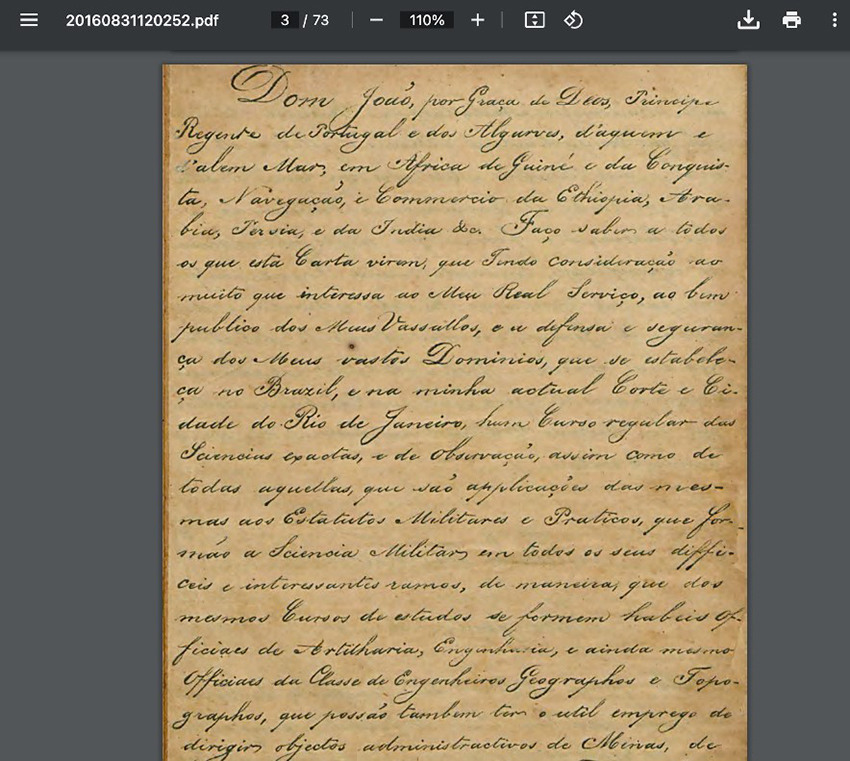 20160831120252.pdf 3 / 73 110%
Dom Joaõ, por Graça de Deos, Principe
Regente de Portugal e dos Algarves, d'aquem e
d'alem Mar, em Africa de Guiné e da Conquis-
ta, Navegaçaõ, e Commercio da Ethiopia, Ara-
bia, Persia, e da India &c. Faço saber a todos
os que esta Carta virem, que Tendo consideraçaõ ao
muito que interessa ao Meu Real Serviço, ao bem
publico dos Meus Vassallos, e a defensa e seguran-
ça dos Meus vastos Dominios, que se estabele-
ça no Brazil, e na minha actual Corte e Ci-
dade do Rio de Janeiro, hum Curso regular das
Sciencias exactas, e de Observaçaõ, assim como de
todas aquellas, que saõ applicações das mes-
mas aos Estatutos Militares e Praticos, que for-
maõ a Sciencia Militar, em todos os seus diffi-
ceis e interessantes ramos, de maneira, que dos
mesmos Cursos de estudos se formem habeis Of-
ficiaes de Artilharia, Engenharia, e ainda mesmo
Officiaes da Classe de Engenheiros Geographos e Topo-
graphos, que possaõ tambem ter o util emprego de
dirigir objectos administractivos de Minas, de